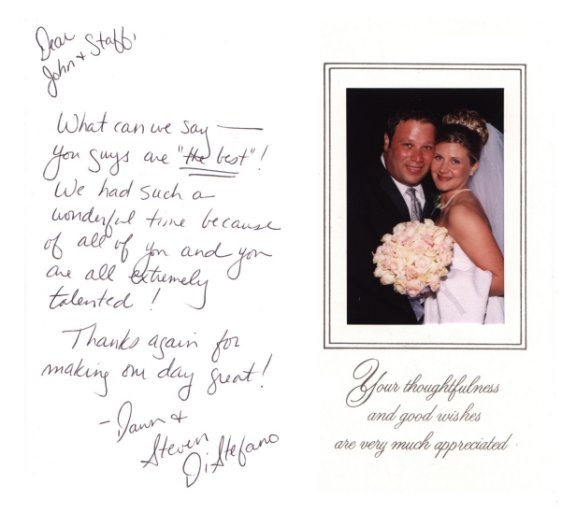 Dear
John + Staff,
What can we say —
You guys are "the best"!
We had such a
wonderful time because
of all of you and you
are all extremely
talented!
Thanks again for
making our day great!
- Dawn &
Steven
DiStefano
Your thoughtfulness
and good wishes
are very much appreciated